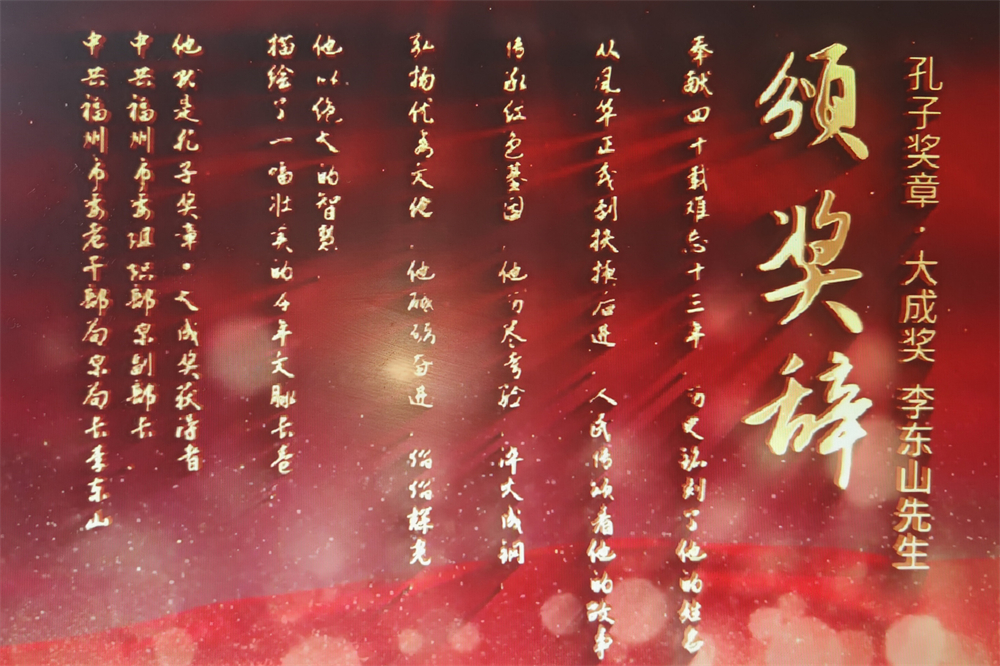 孔子奖章·大成奖 李东山先生
颁奖辞
奉献四十载难忘十三年 历史铭刻了他的姓名
从风华正茂到扶掖后进 人民传颂着他的故事
传承红色基因 他历尽考验 淬火成钢
弘扬优秀文化 他砥砺奋进 熠熠辉光
他以绝大的智慧
描绘了一幅壮美的千年文脉长卷
他就是孔子奖章·大成奖获得者
中共福州市委组织部原副部长
中共福州市委老干部局原局长李东山